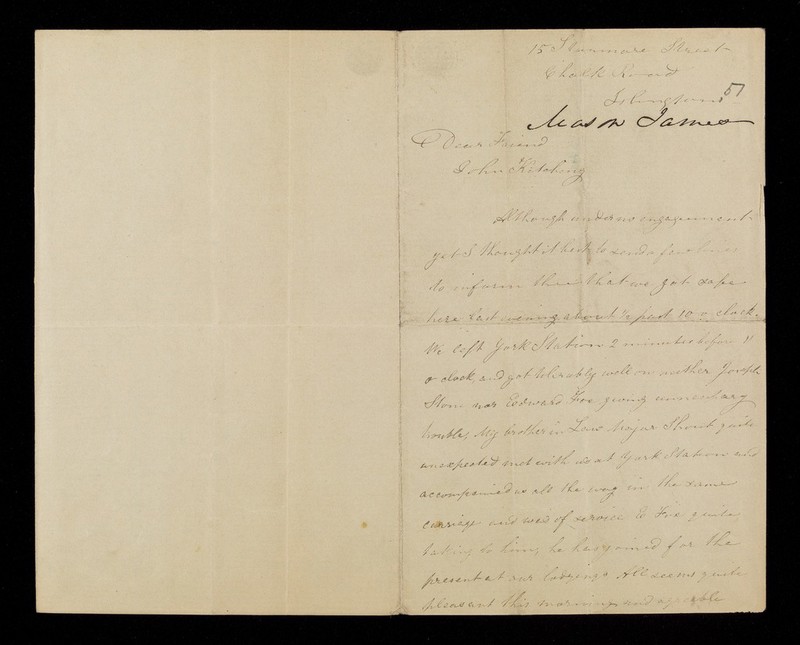 15 Stanmore Street
Chalk Road
Islington
57
Mason James
Dear Friend
John Kitching
Although under no engagement
yet I thought it best to send a few lines
to inform thee that we got safe
here last evening about ½ past 10 o clock
We left York Station 2 minutes before 11
o clock, and got tolerably well on neither Joseph
nor Edward Fox giving unnecessary
trouble, My brother in Law Major Shout quite
unexpected met with us at York Station and
accompanied us all the way in the same
carriage and was of service to Fox quite
taking to him, he has joined for the
present at our lodgings All seems quite
pleasant this morning and agreeable